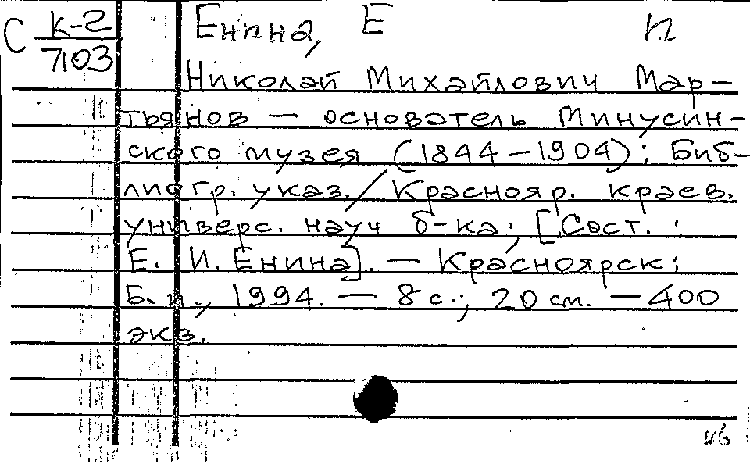 С К-2 Енина, Е И.
7103
Николай Михайлович Мар-
тьянов — основатель Минусин-
ского музея (1844–1904): Биб-
лиогр. указ. / Краснояр. краев.
универс. науч б-ка; [Сост. :
Е. И. Енина]. — Красноярск:
Б.и., 1994. — 8 с.; 20 см. — 400
экз.